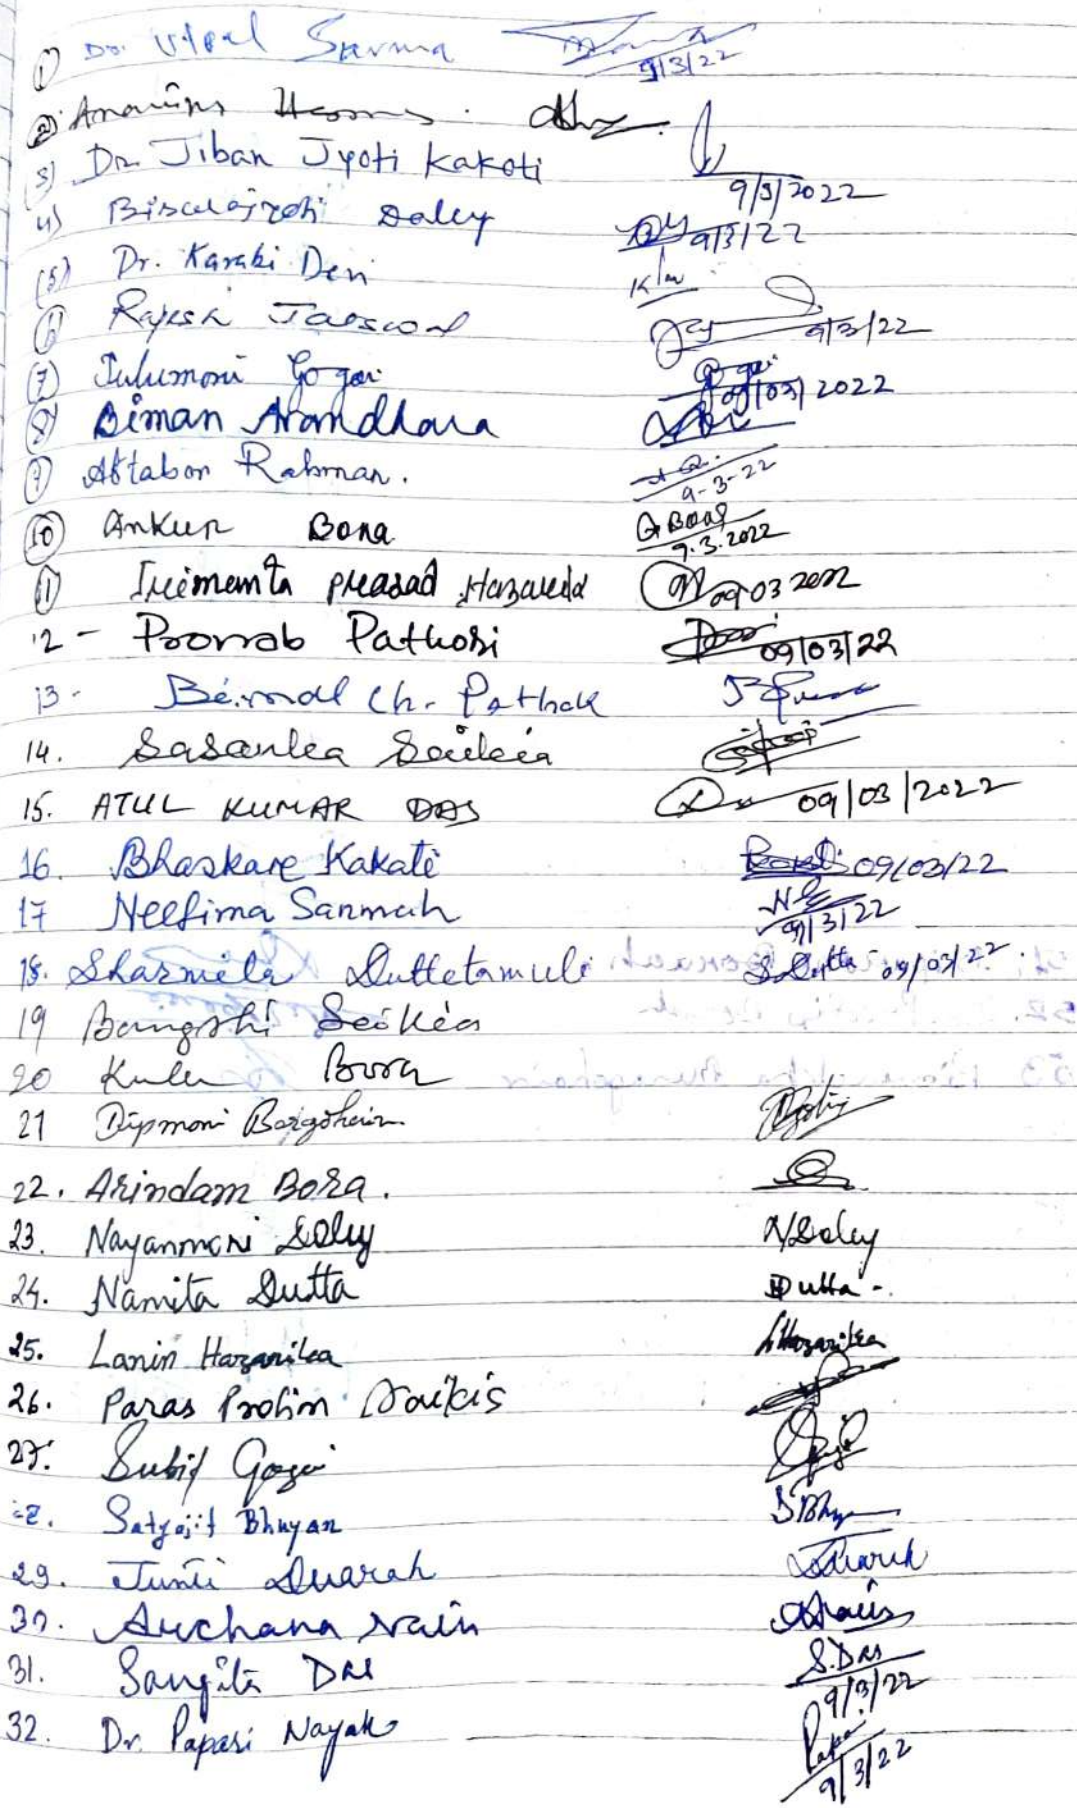 ① Dr. Utpal Sarma 9/3/22
②
③ Dr. Jiban Jyoti Kakoti 9/3/2022
4) Biswajyoti Doley 9/3/22
(5) Dr. Karabi Devi
⑥ Rajesh Jaiswal 9/3/22
⑦ Julumoni Gogoi Gogoi 09/03/2022
⑧ Biman Arandhara
⑨ Aftabor Rahman. 9-3-22
⑩ Ankur Bora 9.3.2022
⑪ Srimanta Prasad Hazarika 09 03 2022
12 - Pronab Pathori 09/03/22
13 - Bimal Ch. Pathak
14. Sasanka Saikia
15. ATUL KUMAR DAS 09/03/2022
16. Bhaskar Kakati 09/03/22
17 Neelima Sarmah 9/3/22
18. Sharmila Duttatamuli S. Dutta 09/03/22
19 Bangshi Seikia
20 Kula Bora
21 Dipmoni Borgohain
22. Arindam Bora.
23. Nayanmoni Doley N Doley
24. Namita Dutta Dutta -
25. Lanin Hazarika LHazarika
26. Paras Protim
27. Subij Gogoi
28. Satyajit Bhuyan SBhy
29. Junti Duarah
30. Archana Nain
31. Sangita Das S.Das 9/3/22
32. Dr. Papari Nayak 9/3/22